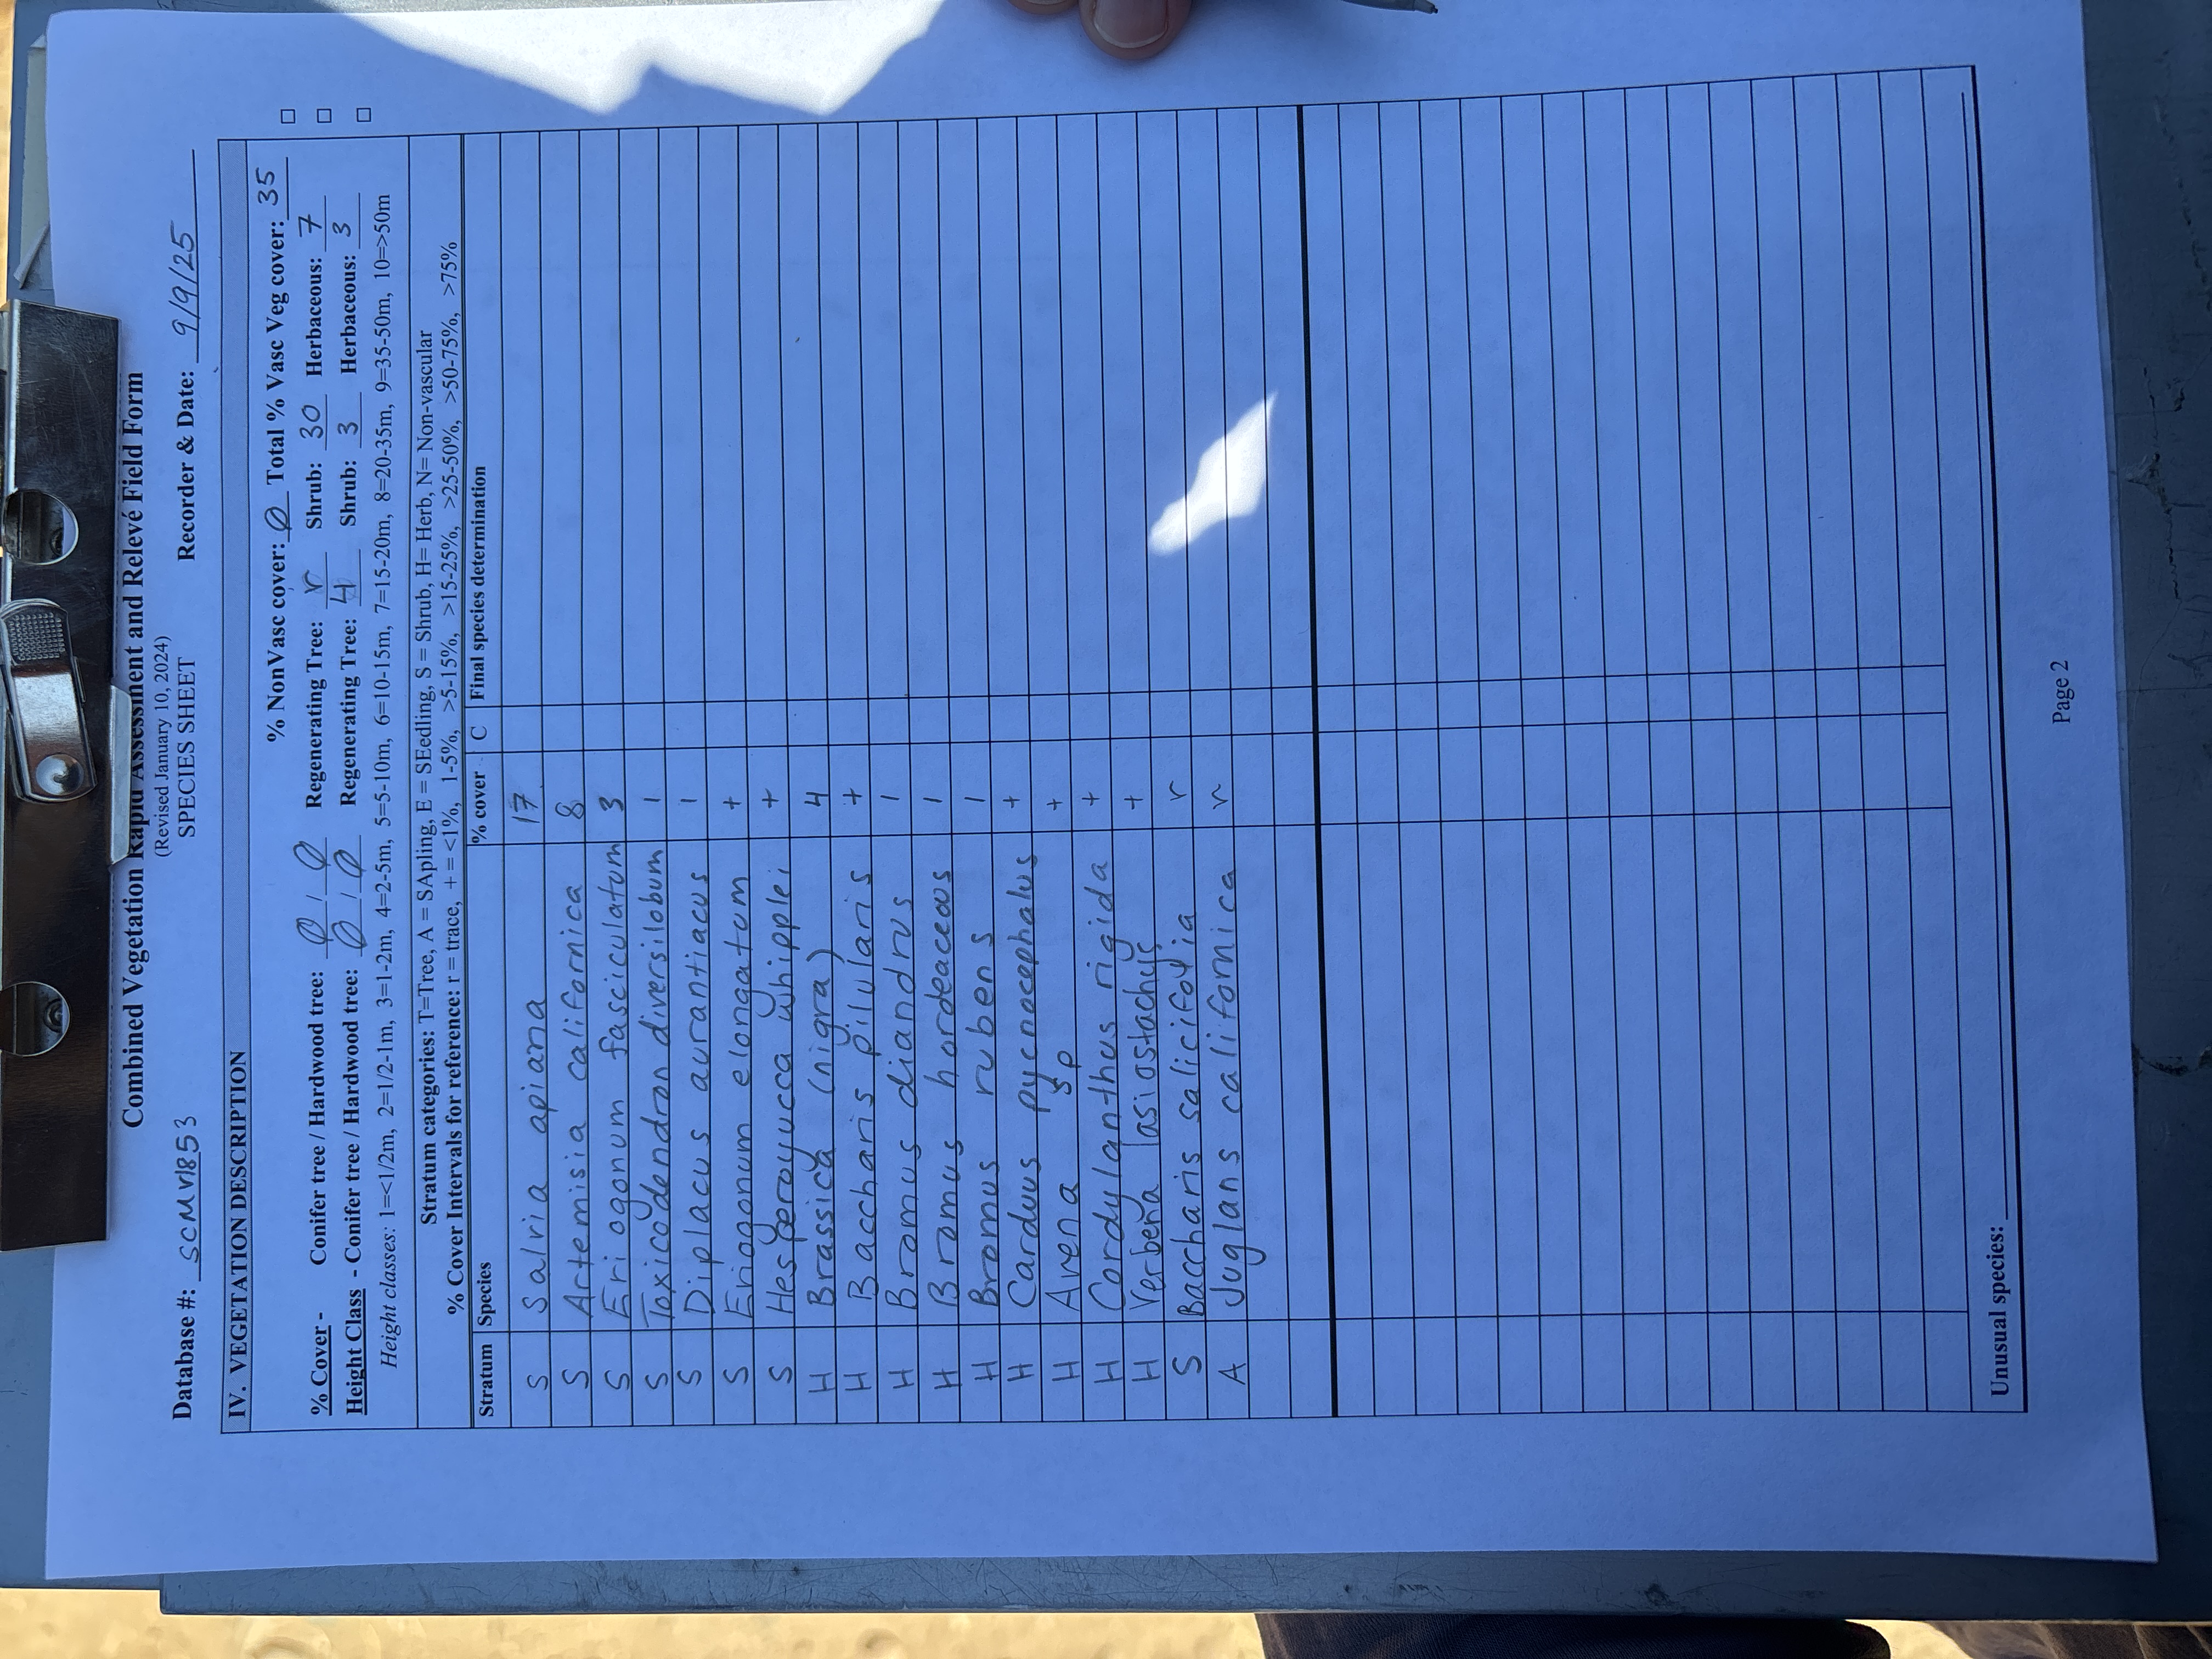 Combined Vegetation Rapid Assessment and Relevé Field Form
(Revised January 10, 2024)
SPECIES SHEET
Database #: SCMV1853 Recorder & Date: 9/9/25
IV. VEGETATION DESCRIPTION
% NonVasc cover: Ø Total % Vasc Veg cover: 35 □
% Cover - Conifer tree / Hardwood tree: Ø / Ø Regenerating Tree: r Shrub: 30 Herbaceous: 7 □
Height Class - Conifer tree / Hardwood tree: Ø / Ø Regenerating Tree: 4 Shrub: 3 Herbaceous: 3 □
Height classes: 1=<1/2m, 2=1/2-1m, 3=1-2m, 4=2-5m, 5=5-10m, 6=10-15m, 7=15-20m, 8=20-35m, 9=35-50m, 10=>50m
Stratum categories: T=Tree, A = SApling, E = SEedling, S = Shrub, H= Herb, N= Non-vascular
% Cover Intervals for reference: r = trace, + = <1%, 1-5%, >5-15%, >15-25%, >25-50%, >50-75%, >75%
Stratum Species % cover C Final species determination
S Salvia apiana 17
S Artemisia californica 8
S Eriogonum fasciculatum 3
S Toxicodendron diversilobum 1
S Diplacus aurantiacus 1
S Eriogonum elongatum +
S Hesperoyucca whipplei +
H Brassica (nigra) 4
H Baccharis pilularis +
H Bromus diandrus 1
H Bromus hordeaceous 1
H Bromus rubens 1
H Carduus pycnocephalus +
H Avena sp +
H Cordylanthus rigida +
H Verbena lasiostachys +
S Baccharis salicifolia r
A Juglans californica r
Unusual species:
Page 2